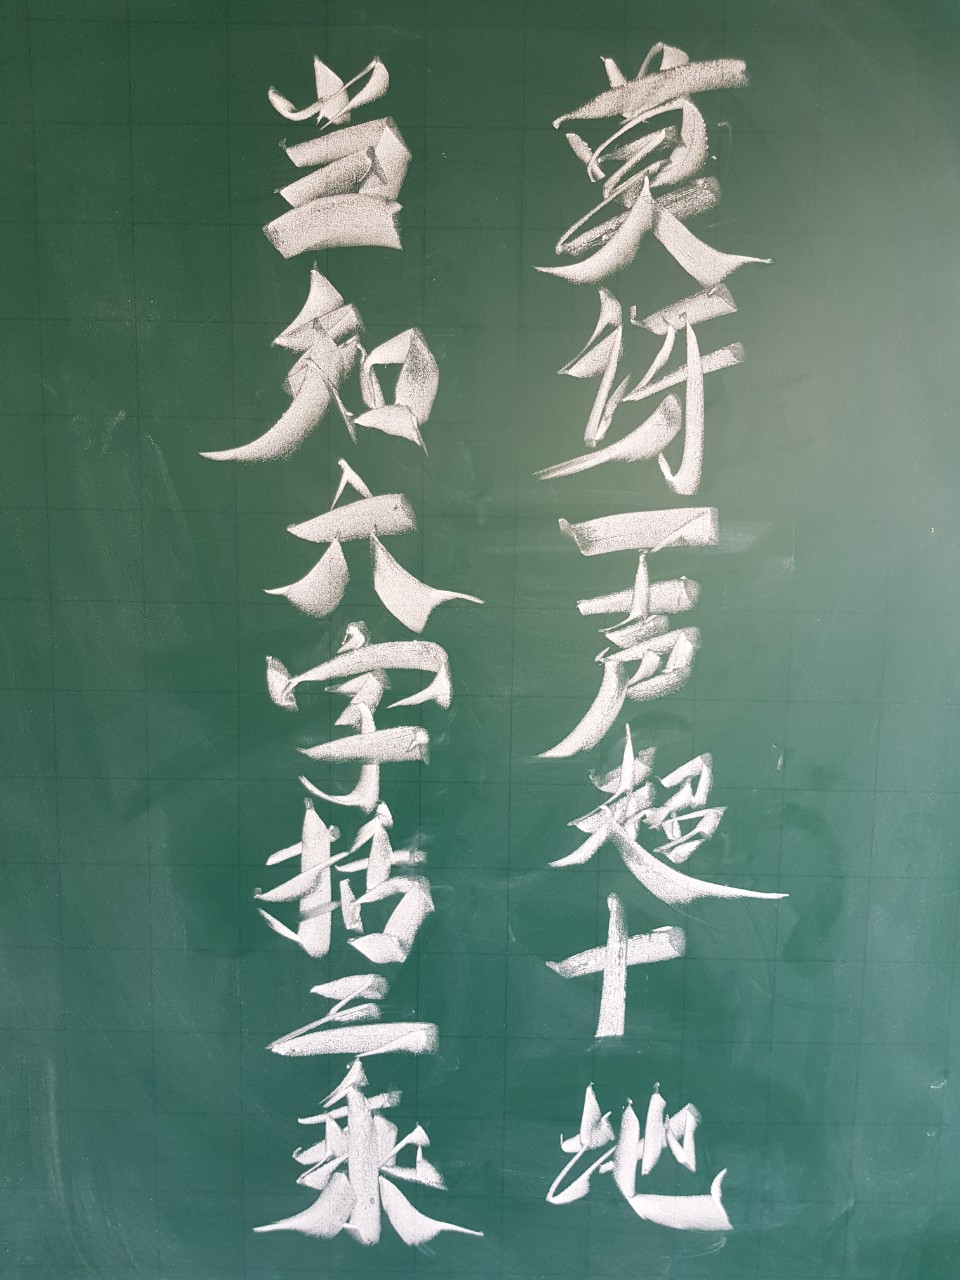 莫讶一声超十地
当知六字括三乘